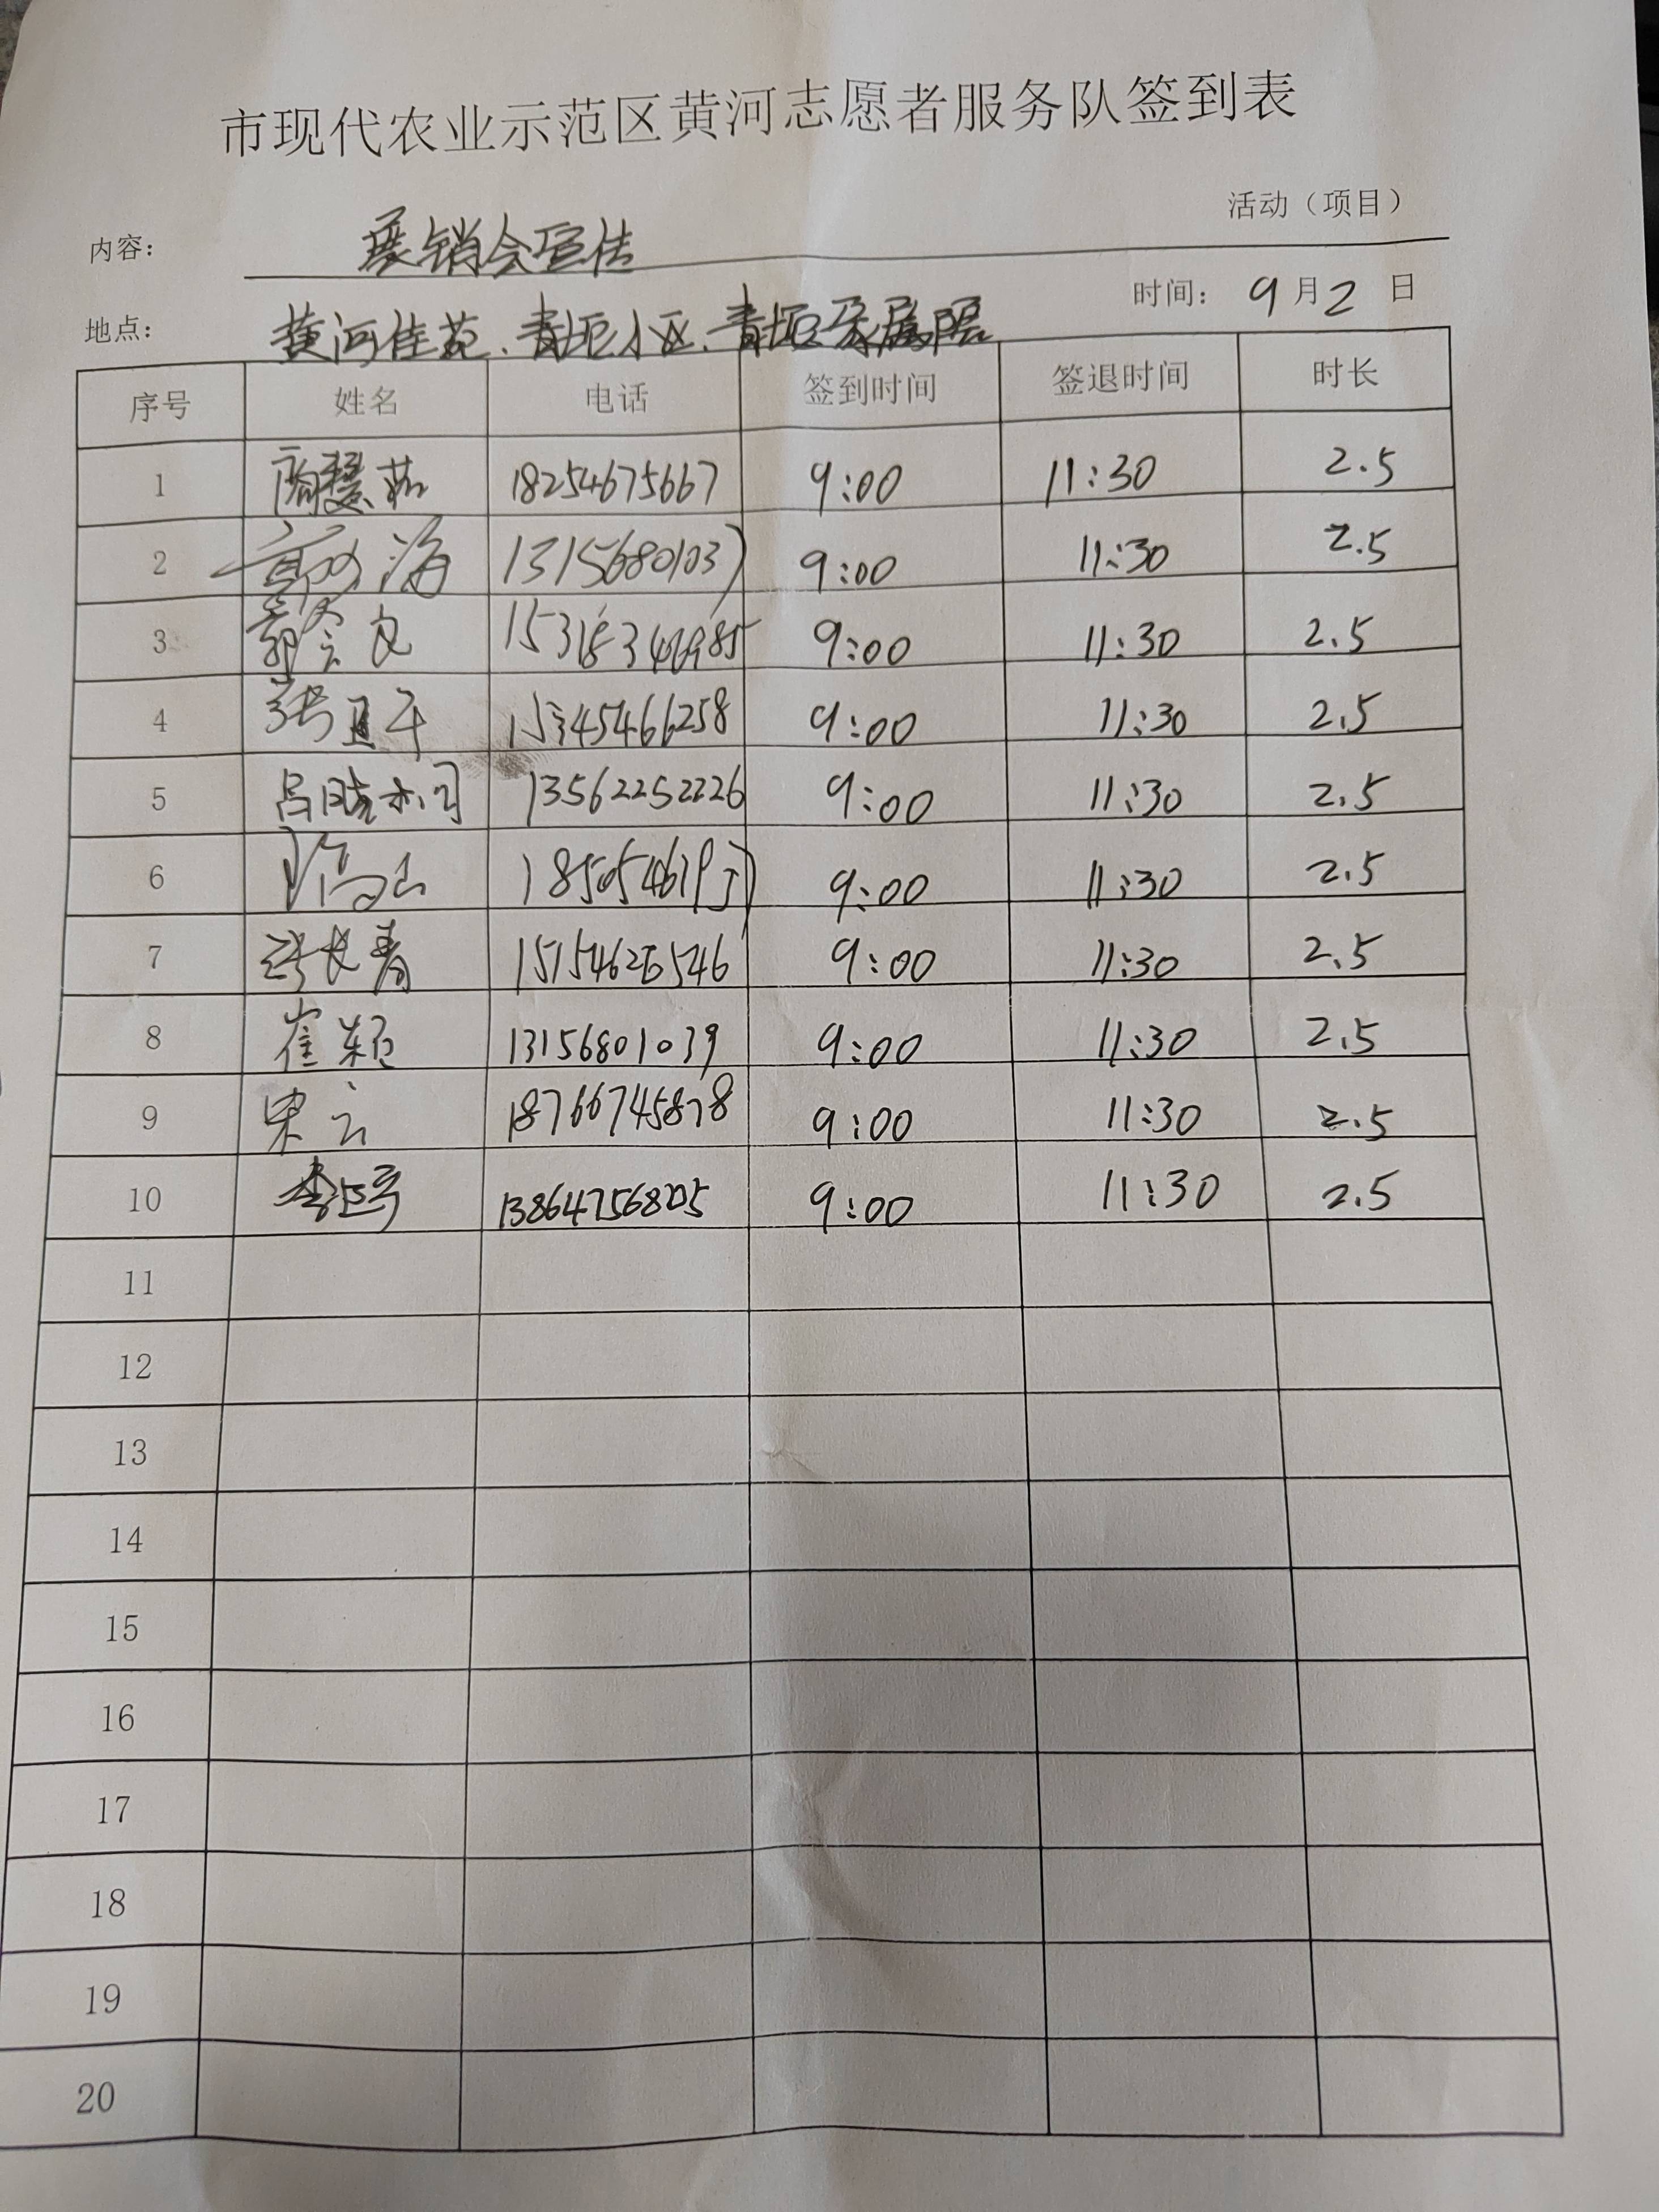 市现代农业示范区黄河志愿者服务队签到表
活动（项目）
内容： 展销会宣传
时间： 9月2日
地点： 黄河佳苑、青垦小区、青垦家属院
序号 姓名 电话 签到时间 签退时间 时长
1 18254675667 9:00 11:30 2.5
2 海 13156801037 9:00 11:30 2.5
3 郭会 9:00 11:30 2.5
4 张卫千 15345466258 9:00 11:30 2.5
5 吕晓 13562252226 9:00 11:30 2.5
6 9:00 11:30 2.5
7 长青 9:00 11:30 2.5
8 崔颖 13156801039 9:00 11:30 2.5
9 宋云 18766745878 9:00 11:30 2.5
10 李 9:00 11:30 2.5
11
12
13
14
15
16
17
18
19
20